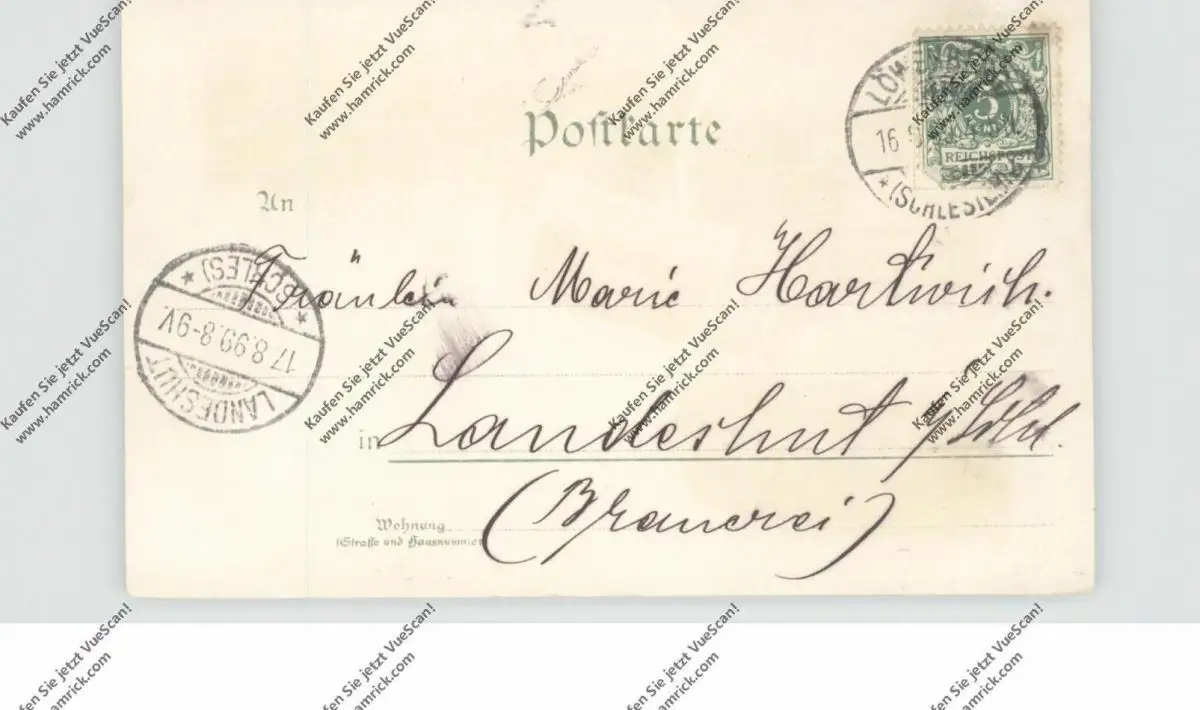 Kaufen Sie jetzt VueScan!
www.hamrick.com
Postkarte
16
(SCHLESIEN)
5
REICHSPOST
An
Fräulein Marie Hartwich.
(SCHLES)
17.8.99.8-9V.
LANDESHUT
in Landeshut
(Brauerei)
Wohnung
(Straße und Hausnummer
Kaufen Sie jetzt VueScan!
www.hamrick.com